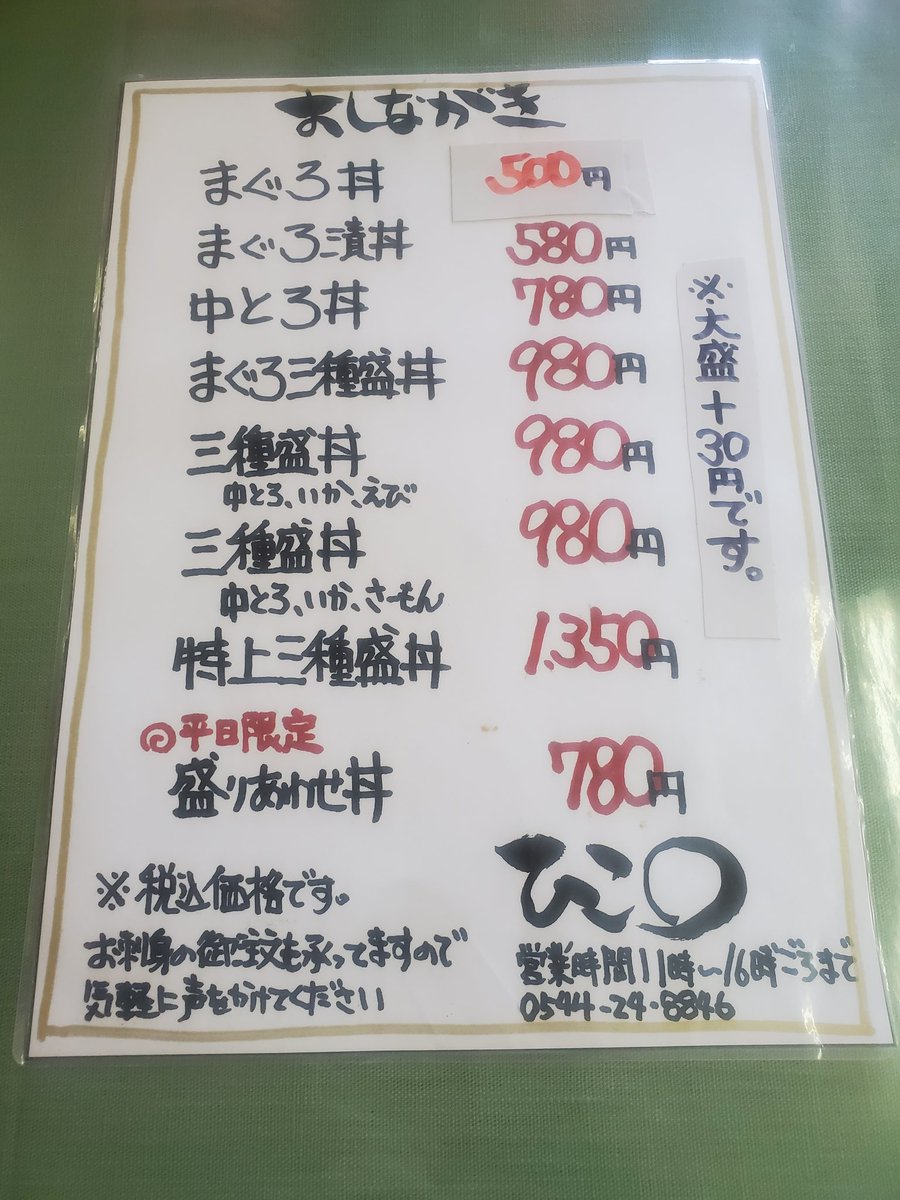 おしながき
まぐろ丼 500円
まぐろ漬丼 580円
中とろ丼 780円
まぐろ三種盛丼 980円
三種盛丼 980円
中とろ、いか、えび
三種盛丼 980円
中とろ、いか、さーもん
特上三種盛丼 1.350円
※大盛+30円です。
平日限定
盛りあわせ丼 780円
※税込価格です。
お刺身の御注文も承ってますので
気軽に声をかけてください
営業時間11時〜16時ごろまで
0544-24-8846